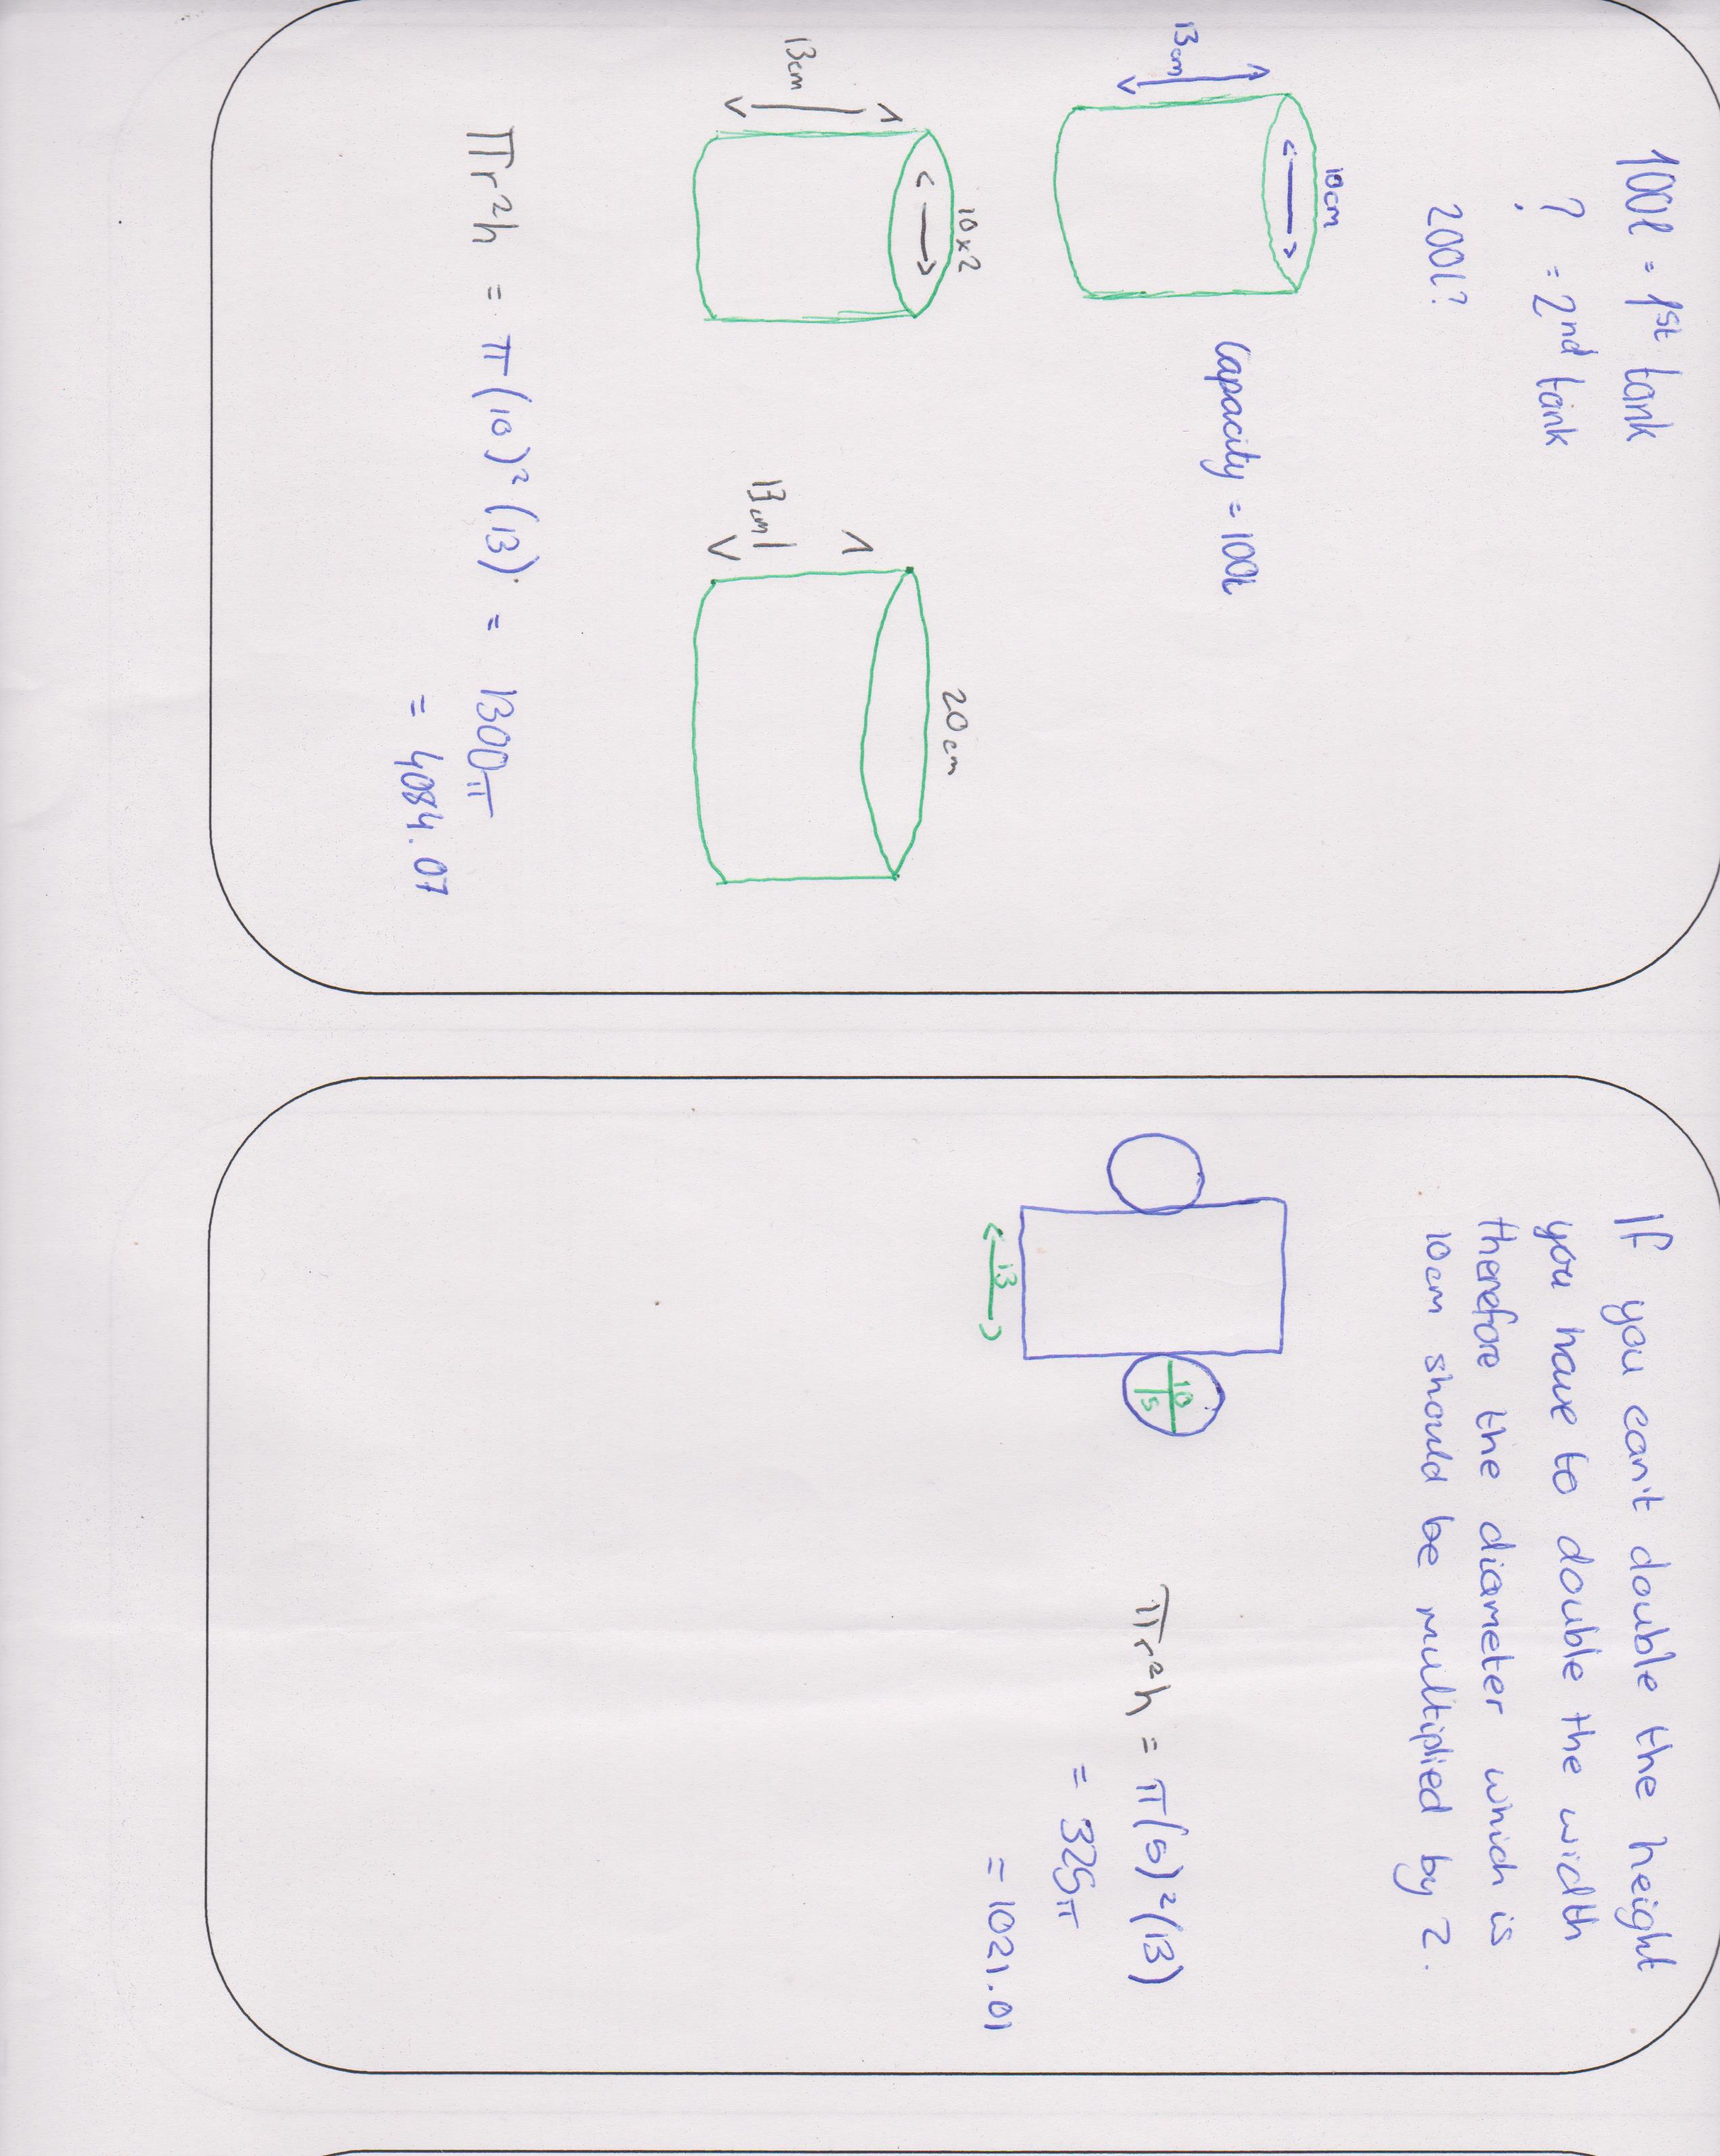 100l = 1st tank
? = 2nd tank
200l?
10cm
13cm
Capacity = 100l
10x2
13cm
20cm
13cm
πr²h = π(10)²(13) = 1300π
= 4084.07
If you can't double the height
you have to double the width
therefore the diameter which is
10cm should be multiplied by 2.
10
5
13
πr²h = π(5)²(13)
= 325π
= 1021.01